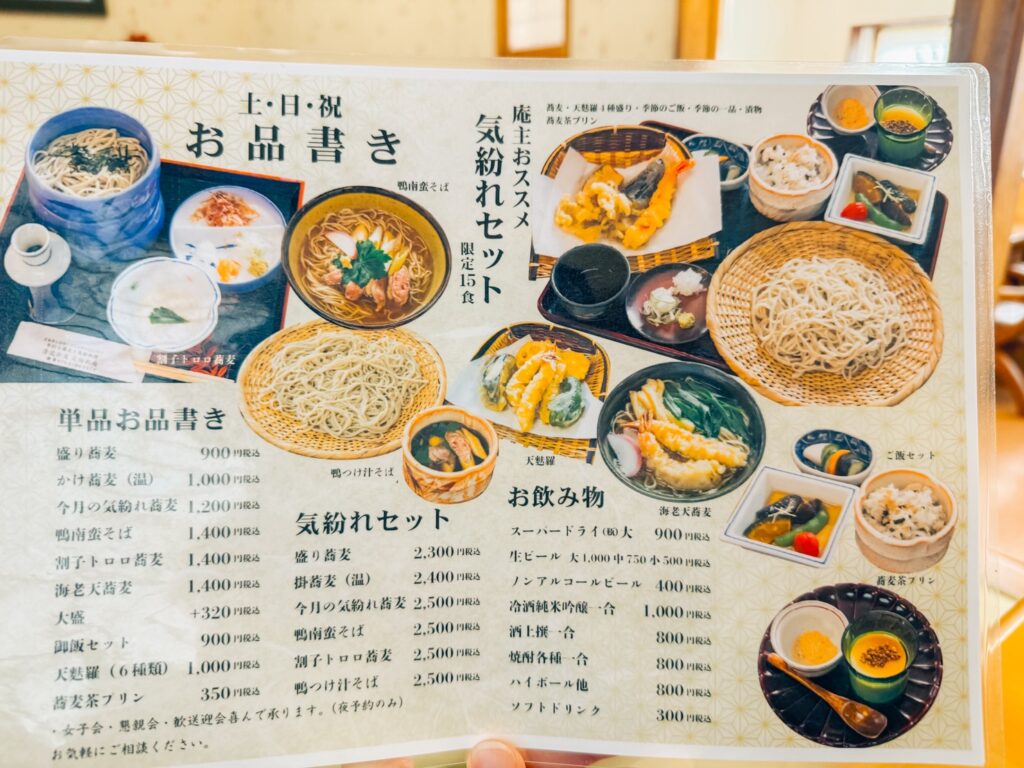 土・日・祝
お品書き
鴨南蛮そば
割子トロロ蕎麦
庵主おススメ
気紛れセット
限定15食
蕎麦・天麩羅4種盛り・季節のご飯・季節の一品・漬物
蕎麦茶プリン
鴨つけ汁そば
天麩羅
海老天蕎麦
ご飯セット
蕎麦茶プリン
単品お品書き
盛り蕎麦 900円税込
かけ蕎麦（温） 1,000円税込
今月の気紛れ蕎麦 1,200円税込
鴨南蛮そば 1,400円税込
割子トロロ蕎麦 1,400円税込
海老天蕎麦 1,400円税込
大盛 +320円税込
御飯セット 900円税込
天麩羅（6種類） 1,000円税込
蕎麦茶プリン 350円税込
・女子会・懇親会・歓送迎会喜んで承ります。（夜予約のみ）
お気軽にご相談ください。
気紛れセット
盛り蕎麦 2,300円税込
掛蕎麦（温） 2,400円税込
今月の気紛れ蕎麦 2,500円税込
鴨南蛮そば 2,500円税込
割子トロロ蕎麦 2,500円税込
鴨つけ汁そば 2,500円税込
お飲み物
スーパードライ㈲大 900円税込
生ビール 大1,000中750小500円税込
ノンアルコールビール 400円税込
冷酒純米吟醸一合 1,000円税込
酒上撰一合 800円税込
焼酎各種一合 800円税込
ハイボール他 800円税込
ソフトドリンク 300円税込